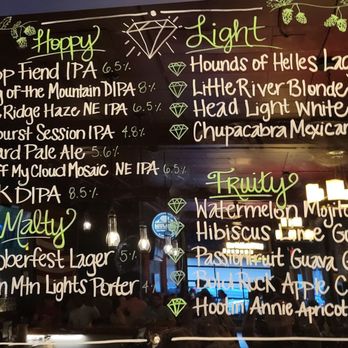 Hoppy
op Fiend IPA 6.5%
g of the Mountain DIPA 8%
Ridge Haze NE IPA 6.5%
burst Session IPA 4.8%
ard Pale Ale 5.6%
ff My Cloud Mosaic NE IPA 6.5%
K DIPA 8.5%
Malty
oberfest Lager 5%
n Mtn Lights Porter 4
Light
Hounds of Helles Lag
Little River Blonde
Head Light White
Chupacabra Mexican
Fruity
Watermelon Mojito
Hibiscus Gu
Passionfruit Guava G
Bold Rock Apple C
Hootin' Annie Apricot